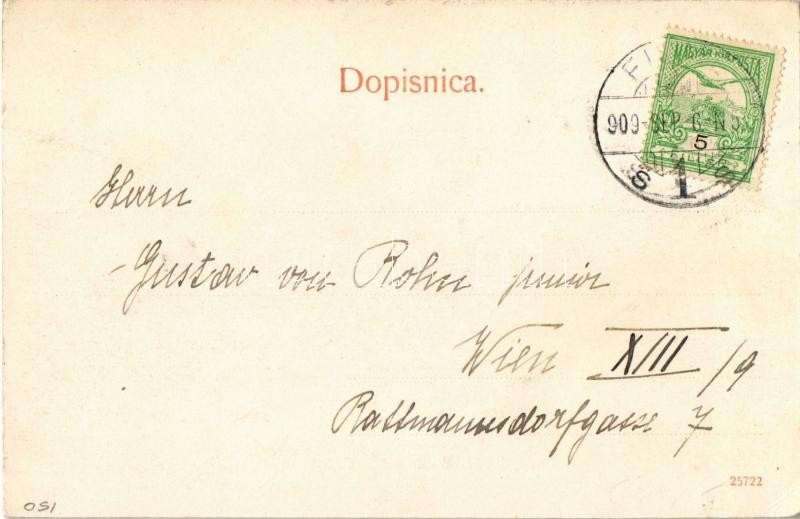 Dopisnica.
MAGYAR KIR. POSTA
909-SEP-6-N3
5
1
Herrn
Gustav von
junior
Wien XIII/9
Rattmannsdorfgasse 7
25722
OSI